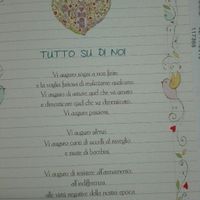 TUTTO SU DI NOI
Vi auguro sogni a non finire
e la voglia furiosa di realizzarne qualcuno.
Vi auguro di amare quel che va amato
e dimenticare quel che va dimenticato.
Vi auguro passioni.
Vi auguro silenzi.
Vi auguro canti di uccelli al risveglio
e risate di bambini.
Vi auguro di resistere all'affondamento,
all'indifferenza,
alle virtù negative della nostra epoca.